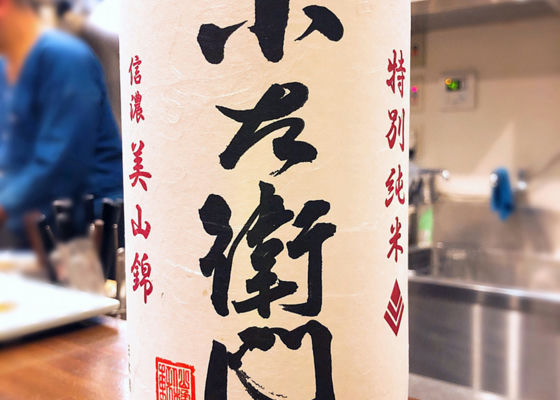 特別純米
小左衛門
信濃美山錦